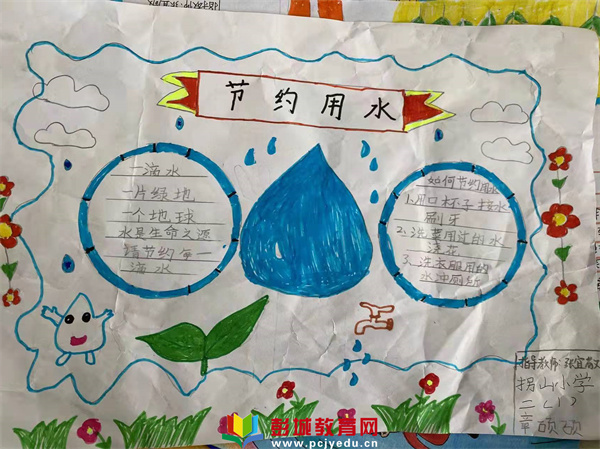 节约用水
一滴水
一片绿地
一个地球
水是生命之源
请节约每一
滴水
如何节约用水
1.用口杯子接水
刷牙
2.洗菜用过的水
浇花
3.洗衣服用的
水冲厕所
拐山小学
二(1)
章硕硕
彭城教育网
www.pcjyedu.cn